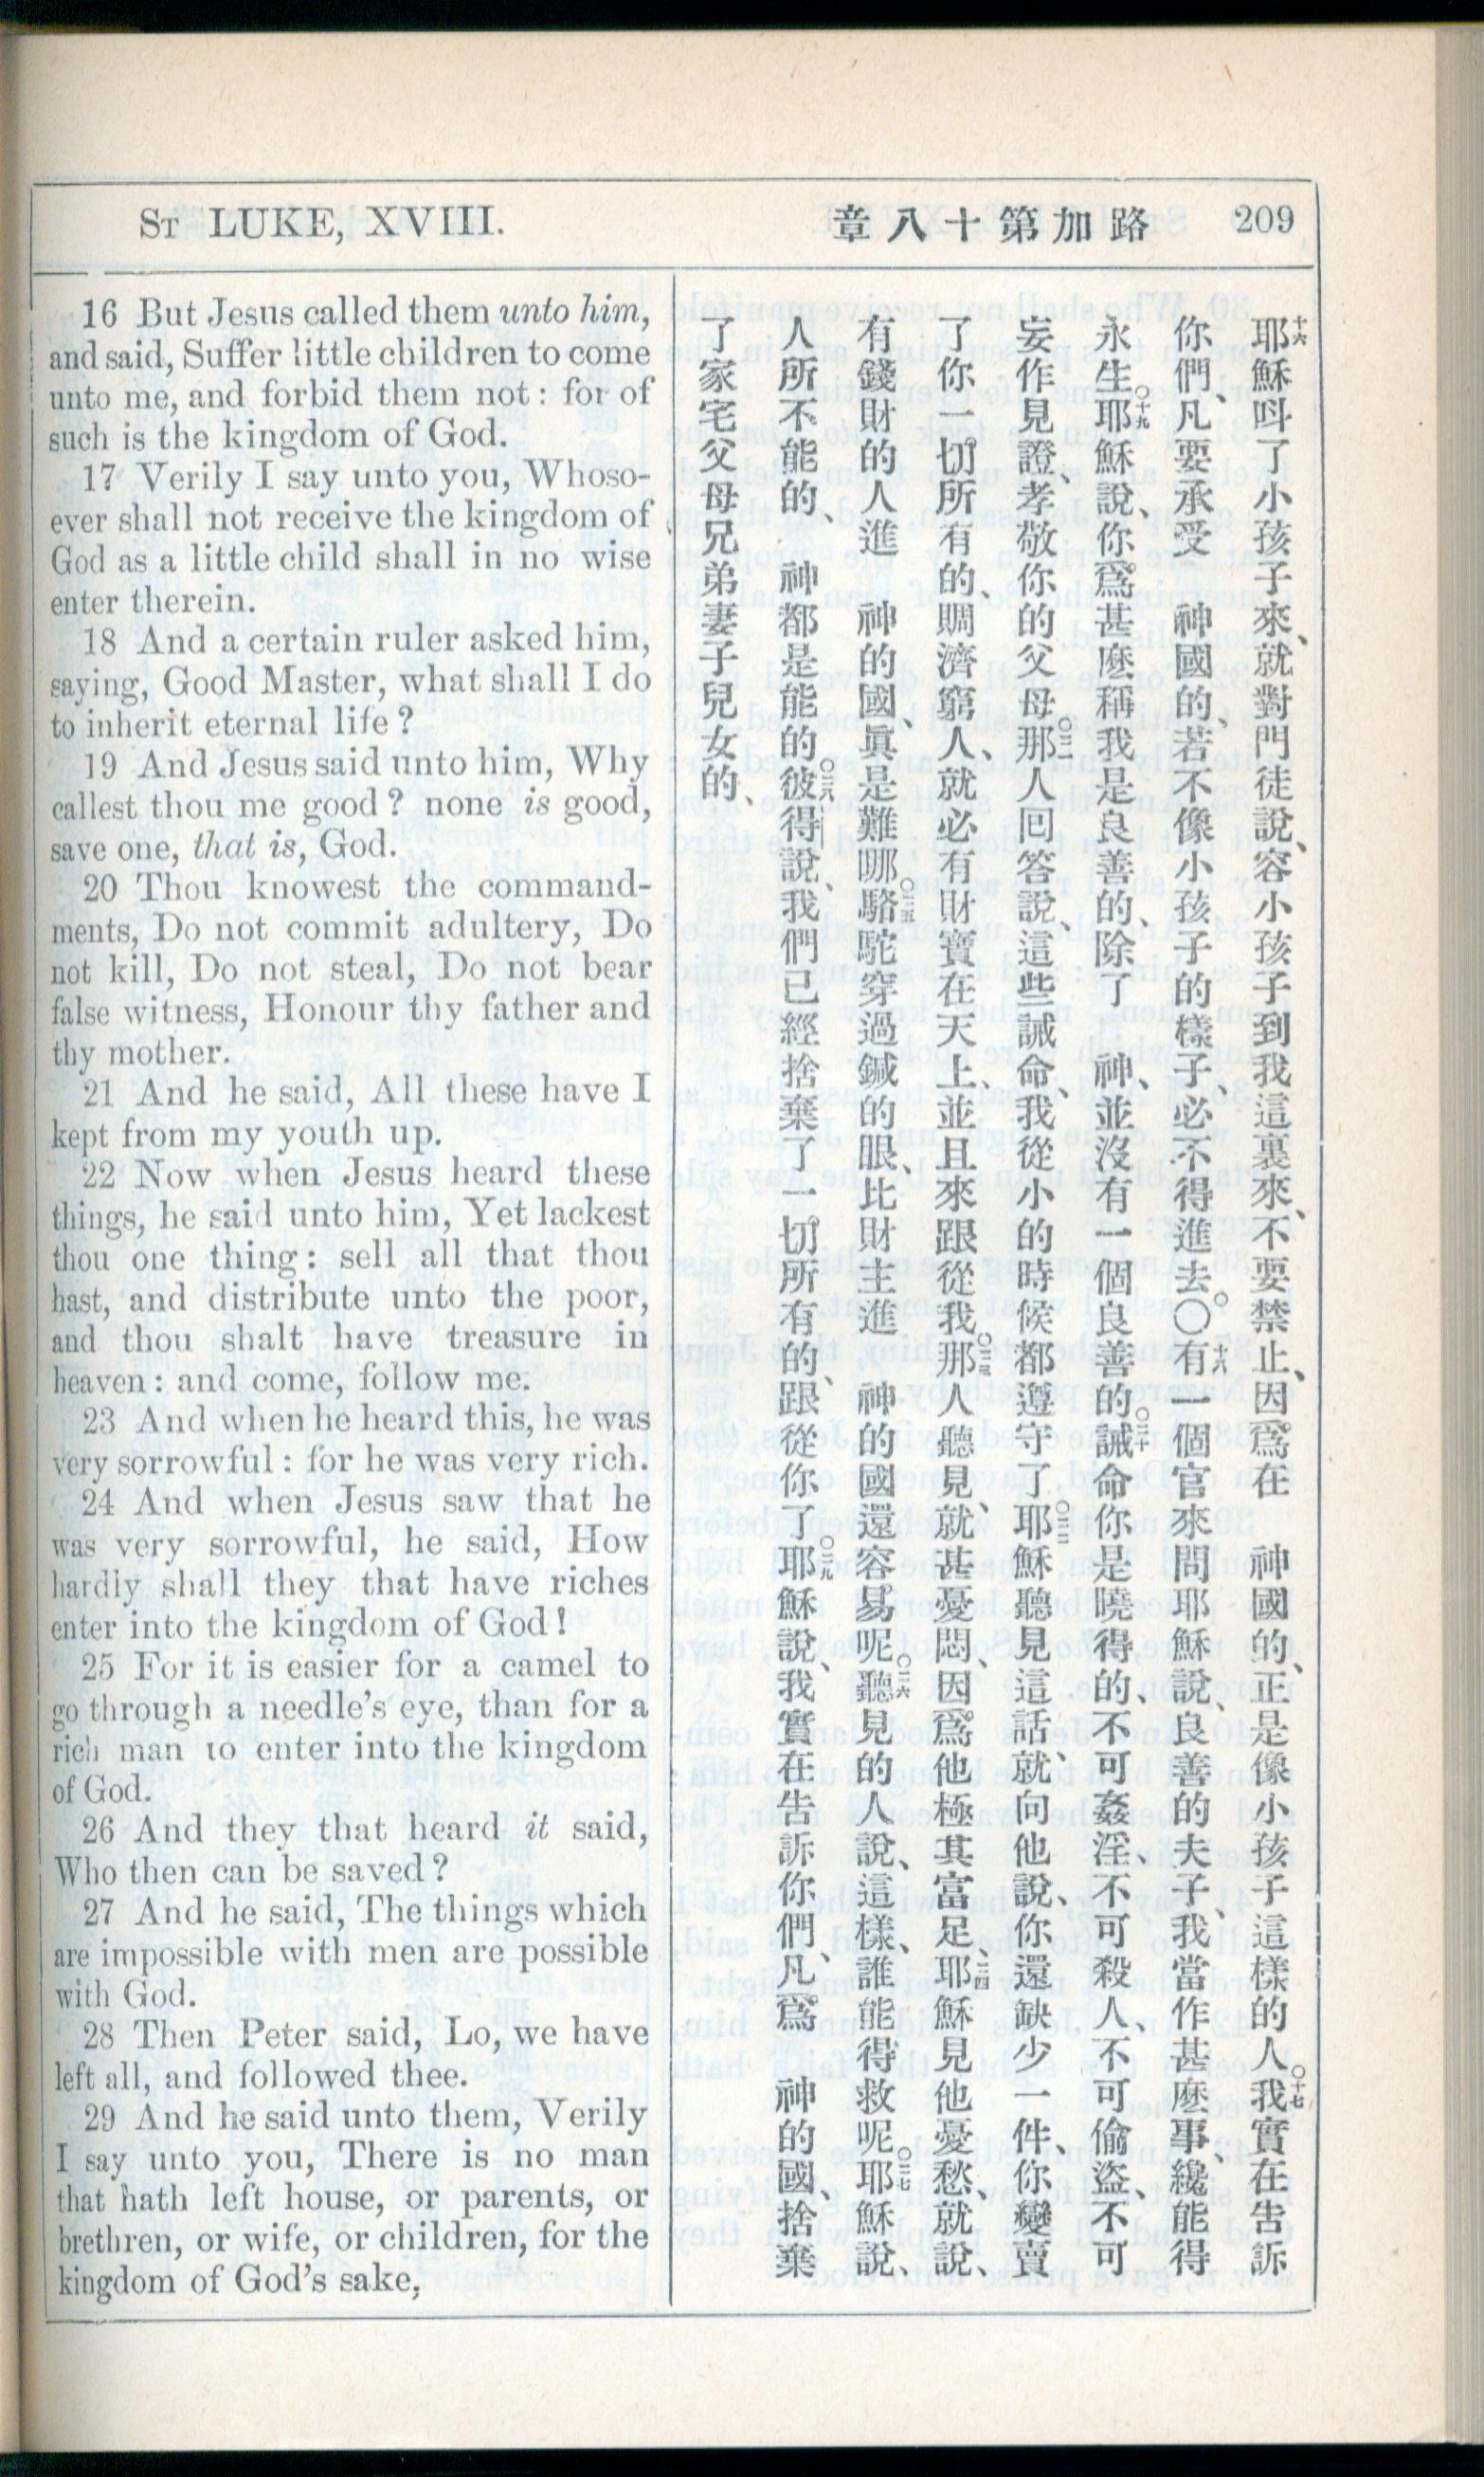 ST LUKE, XVIII.
章八十第加路
209
16 But Jesus called them unto him,
and said, Suffer little children to come
unto me, and forbid them not: for of
such is the kingdom of God.
17 Verily I say unto you, Whoso-
ever shall not receive the kingdom of
God as a little child shall in no wise
enter therein.
18 And a certain ruler asked him,
saying, Good Master, what shall I do
to inherit eternal life?
19 And Jesus said unto him, Why
callest thou me good? none is good,
save one, that is, God.
20 Thou knowest the command-
ments, Do not commit adultery, Do
not kill, Do not steal, Do not bear
false witness, Honour thy father and
thy mother.
21 And he said, All these have I
kept from my youth up.
22 Now when Jesus heard these
things, he said unto him, Yet lackest
thou one thing: sell all that thou
hast, and distribute unto the poor,
and thou shalt have treasure in
heaven: and come, follow me.
23 And when he heard this, he was
very sorrowful: for he was very rich.
24 And when Jesus saw that he
was very sorrowful, he said, How
hardly shall they that have riches
enter into the kingdom of God!
25 For it is easier for a camel to
go through a needle's eye, than for a
rich man to enter into the kingdom
of God.
26 And they that heard it said,
Who then can be saved?
27 And he said, The things which
are impossible with men are possible
with God.
28 Then Peter said, Lo, we have
left all, and followed thee.
29 And he said unto them, Verily
I say unto you, There is no man
that hath left house, or parents, or
brethren, or wife, or children, for the
kingdom of God's sake,
十六耶穌呌了小孩子來、就對門徒說、容小孩子到我這裏來、不要禁止、因爲在　神國的、正是像小孩子這樣的人。十七我實在告訴
你們、凡要承受　神國的、若不像小孩子的樣子、必不得進去。〇十八有一個官來問耶穌說、良善的夫子、我當作甚麽事、纔能得
永生。十九耶穌說、你爲甚麽稱我是良善的、除了　神、並沒有一個良善的。二十誡命你是曉得的、不可姦淫、不可殺人、不可偷盜、不可
妄作見證、孝敬你的父母。二一那人回答說、這些誡命、我從小的時候都遵守了。二二耶穌聽見這話、就向他說、你還缺少一件、你變賣
了你一切所有的、賙濟窮人、就必有財寶在天上、並且來跟從我。二三那人聽見、就甚憂悶、因爲他極其富足、二四耶穌見他憂愁、就說、
有錢財的人進　神的國、眞是難哪。二五駱駝穿過鍼的眼、比財主進　神的國還容易呢。二六聽見的人說、這樣、誰能得救呢。二七耶穌說、
人所不能的、　神都是能的。二八彼得說、我們已經捨棄了一切所有的、跟從你了。二九耶穌說、我實在告訴你們、凡爲　神的國、捨棄
了家宅父母兄弟妻子兒女的、